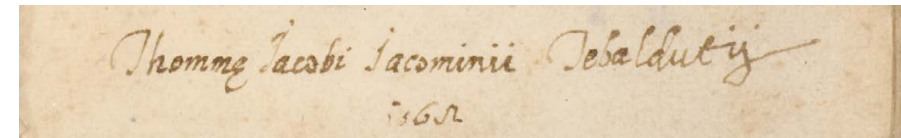 Thommę Iacobi Iacominii Tebaldutij
1562